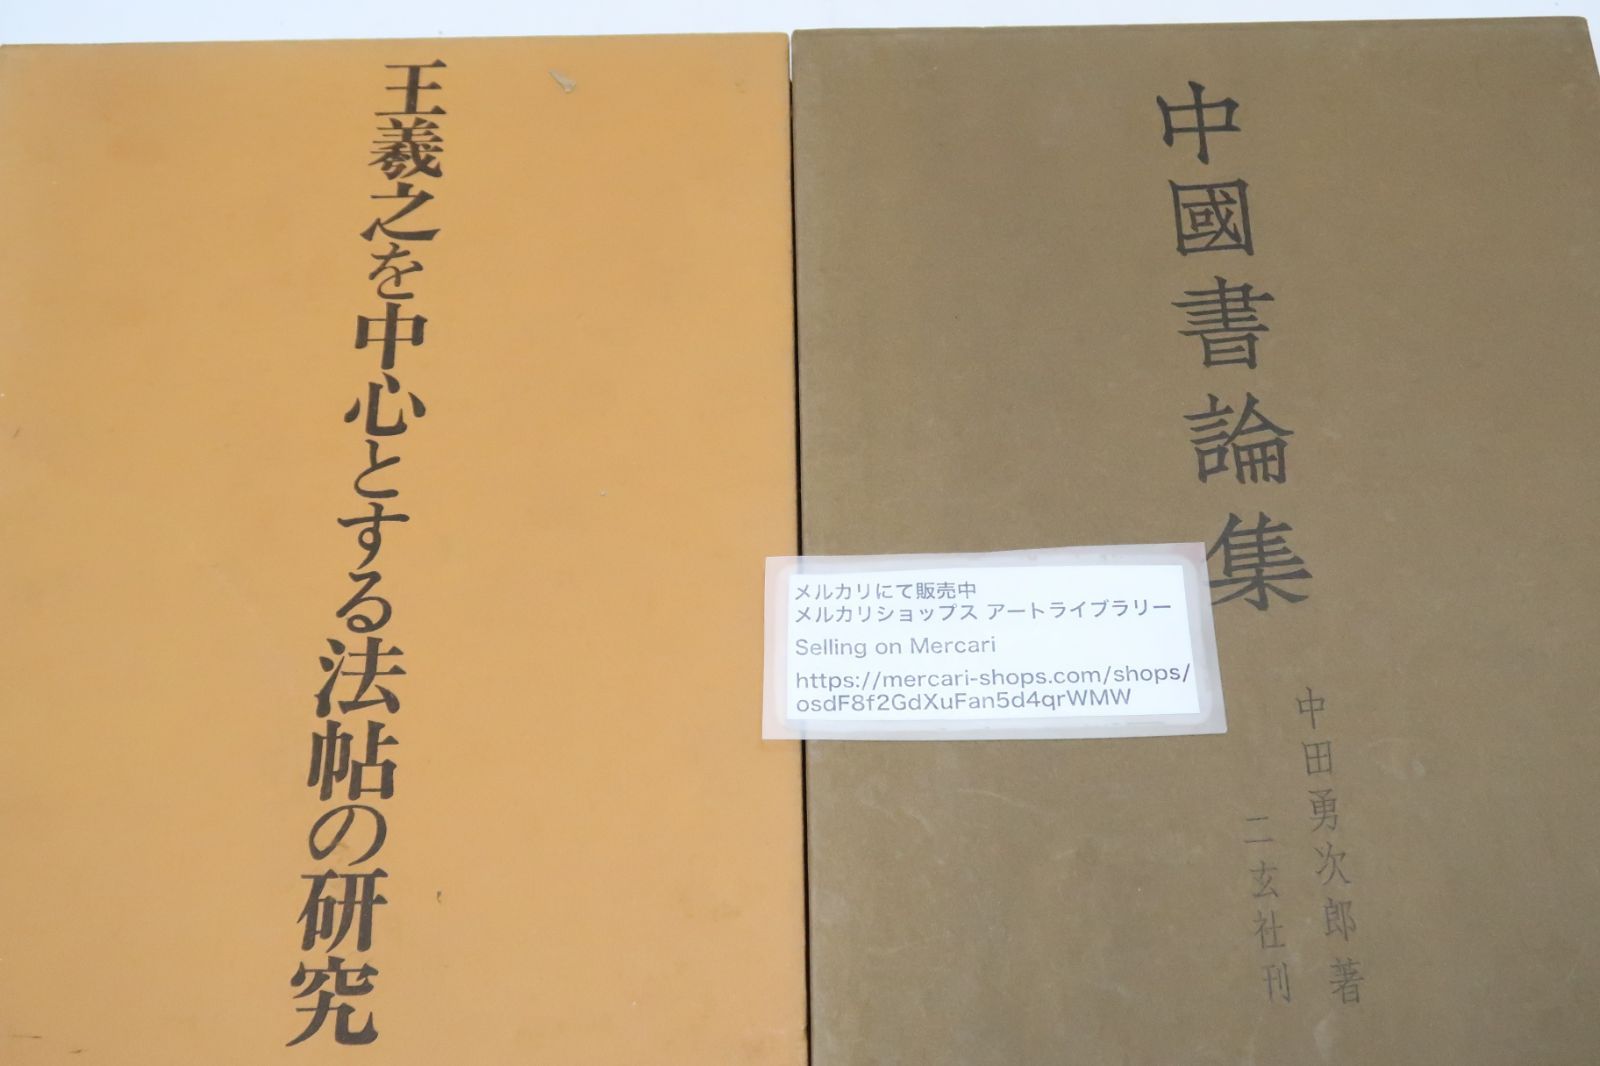 王羲之を中心とする法帖の研究
中國書論集
中田勇次郎著
二玄社刊
メルカリにて販売中
メルカリショップス アートライブラリー
Selling on Mercari
https://mercari-shops.com/shops/
osdF8f2GdXuFan5d4qrWMW